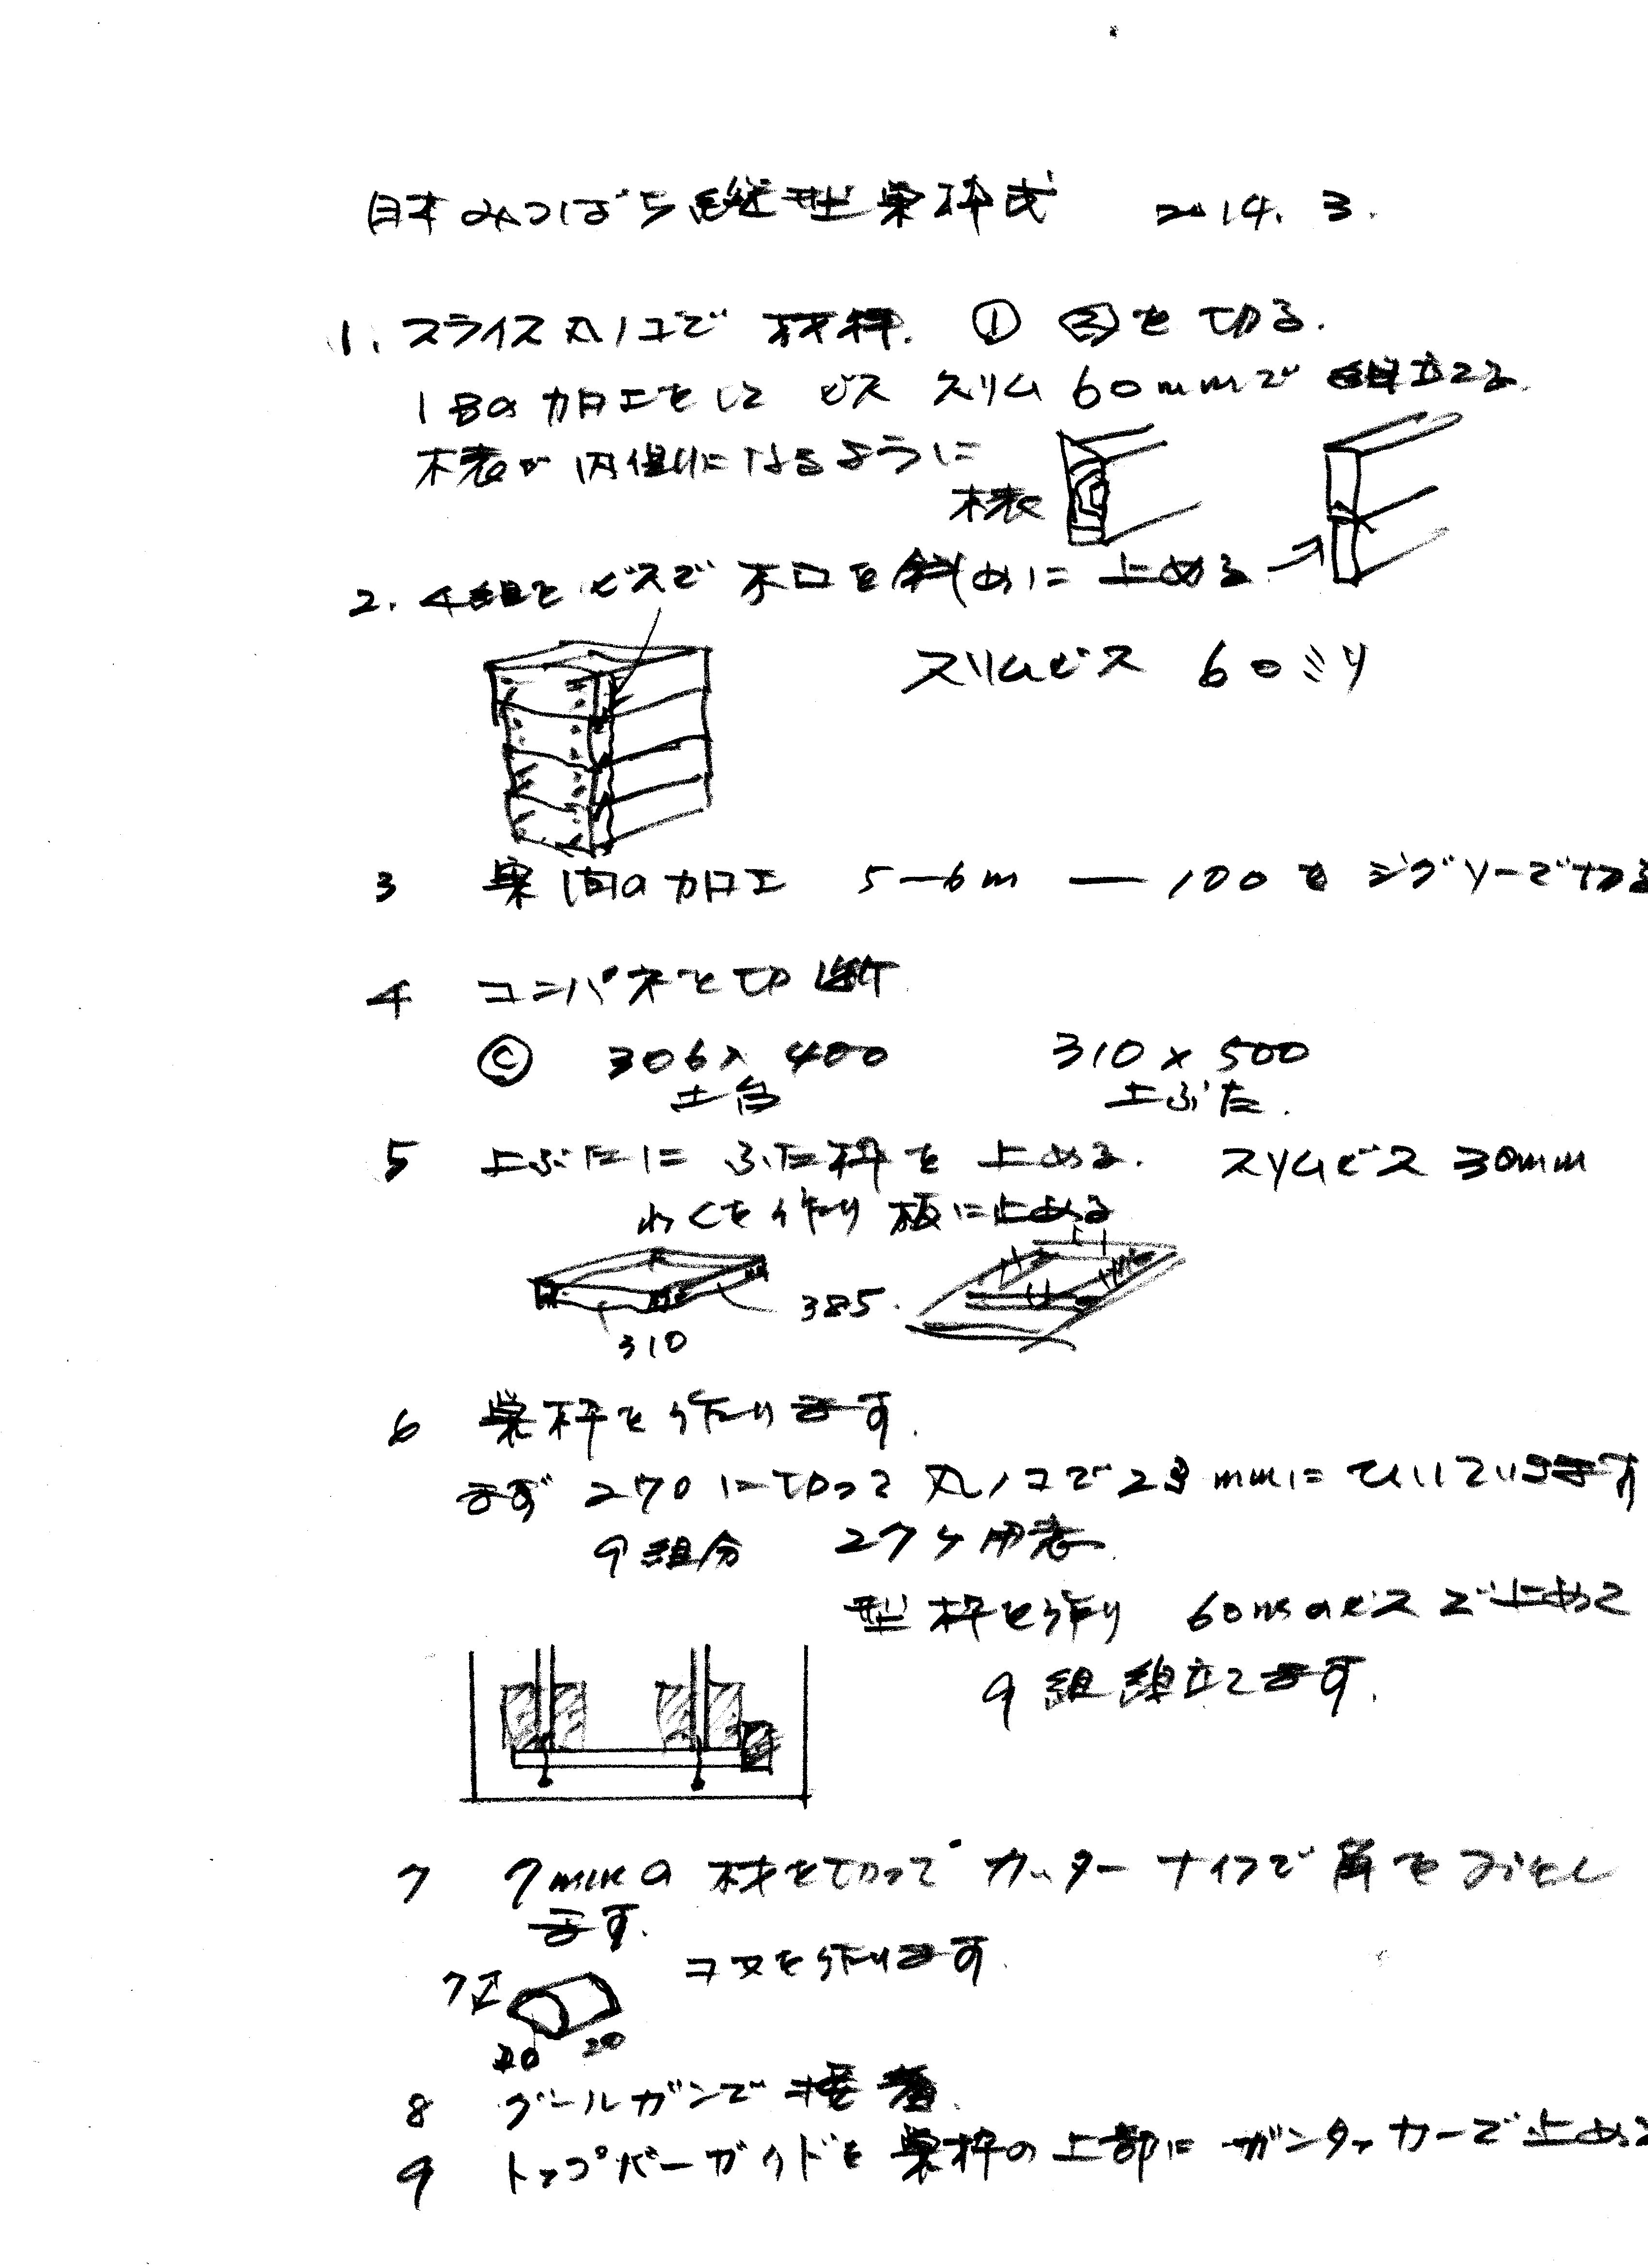 日本みつばち縦型巣枠式 2014. 3.
1. スライス丸ノコで 材料. ① ②を 切る.
加工をして ビス スリム 60mmで 組立てる.
木表が 内側に なるように
木表
2. 4組を ビスで 木口を 斜(め)に 止める →
スリムビス 60ミリ
3 巣門の加工 5-6m — 100を ジグソーで切る
4 コンパネを切断
Ⓒ 306× 400 310 × 500
土台 上ぶた.
5 上ぶたに ふた枠を 止める. スリムビス 30mm
わくを作り 板に止める
385.
310
6 巣枠を作ります.
まず 270に切って 丸ノコで 23mmに ひいていきます
9組分 27ケ用意.
型枠を作り 60mmのビスで止めて
9組 組立てます.
7 7mmの 材を切って カッターナイフで 角をおとし
ます.
コマを作ります.
7
20 20
8 グールガンで 接着.
9 トップバーガイドを 巣枠の上部に ガンタッカーで止める